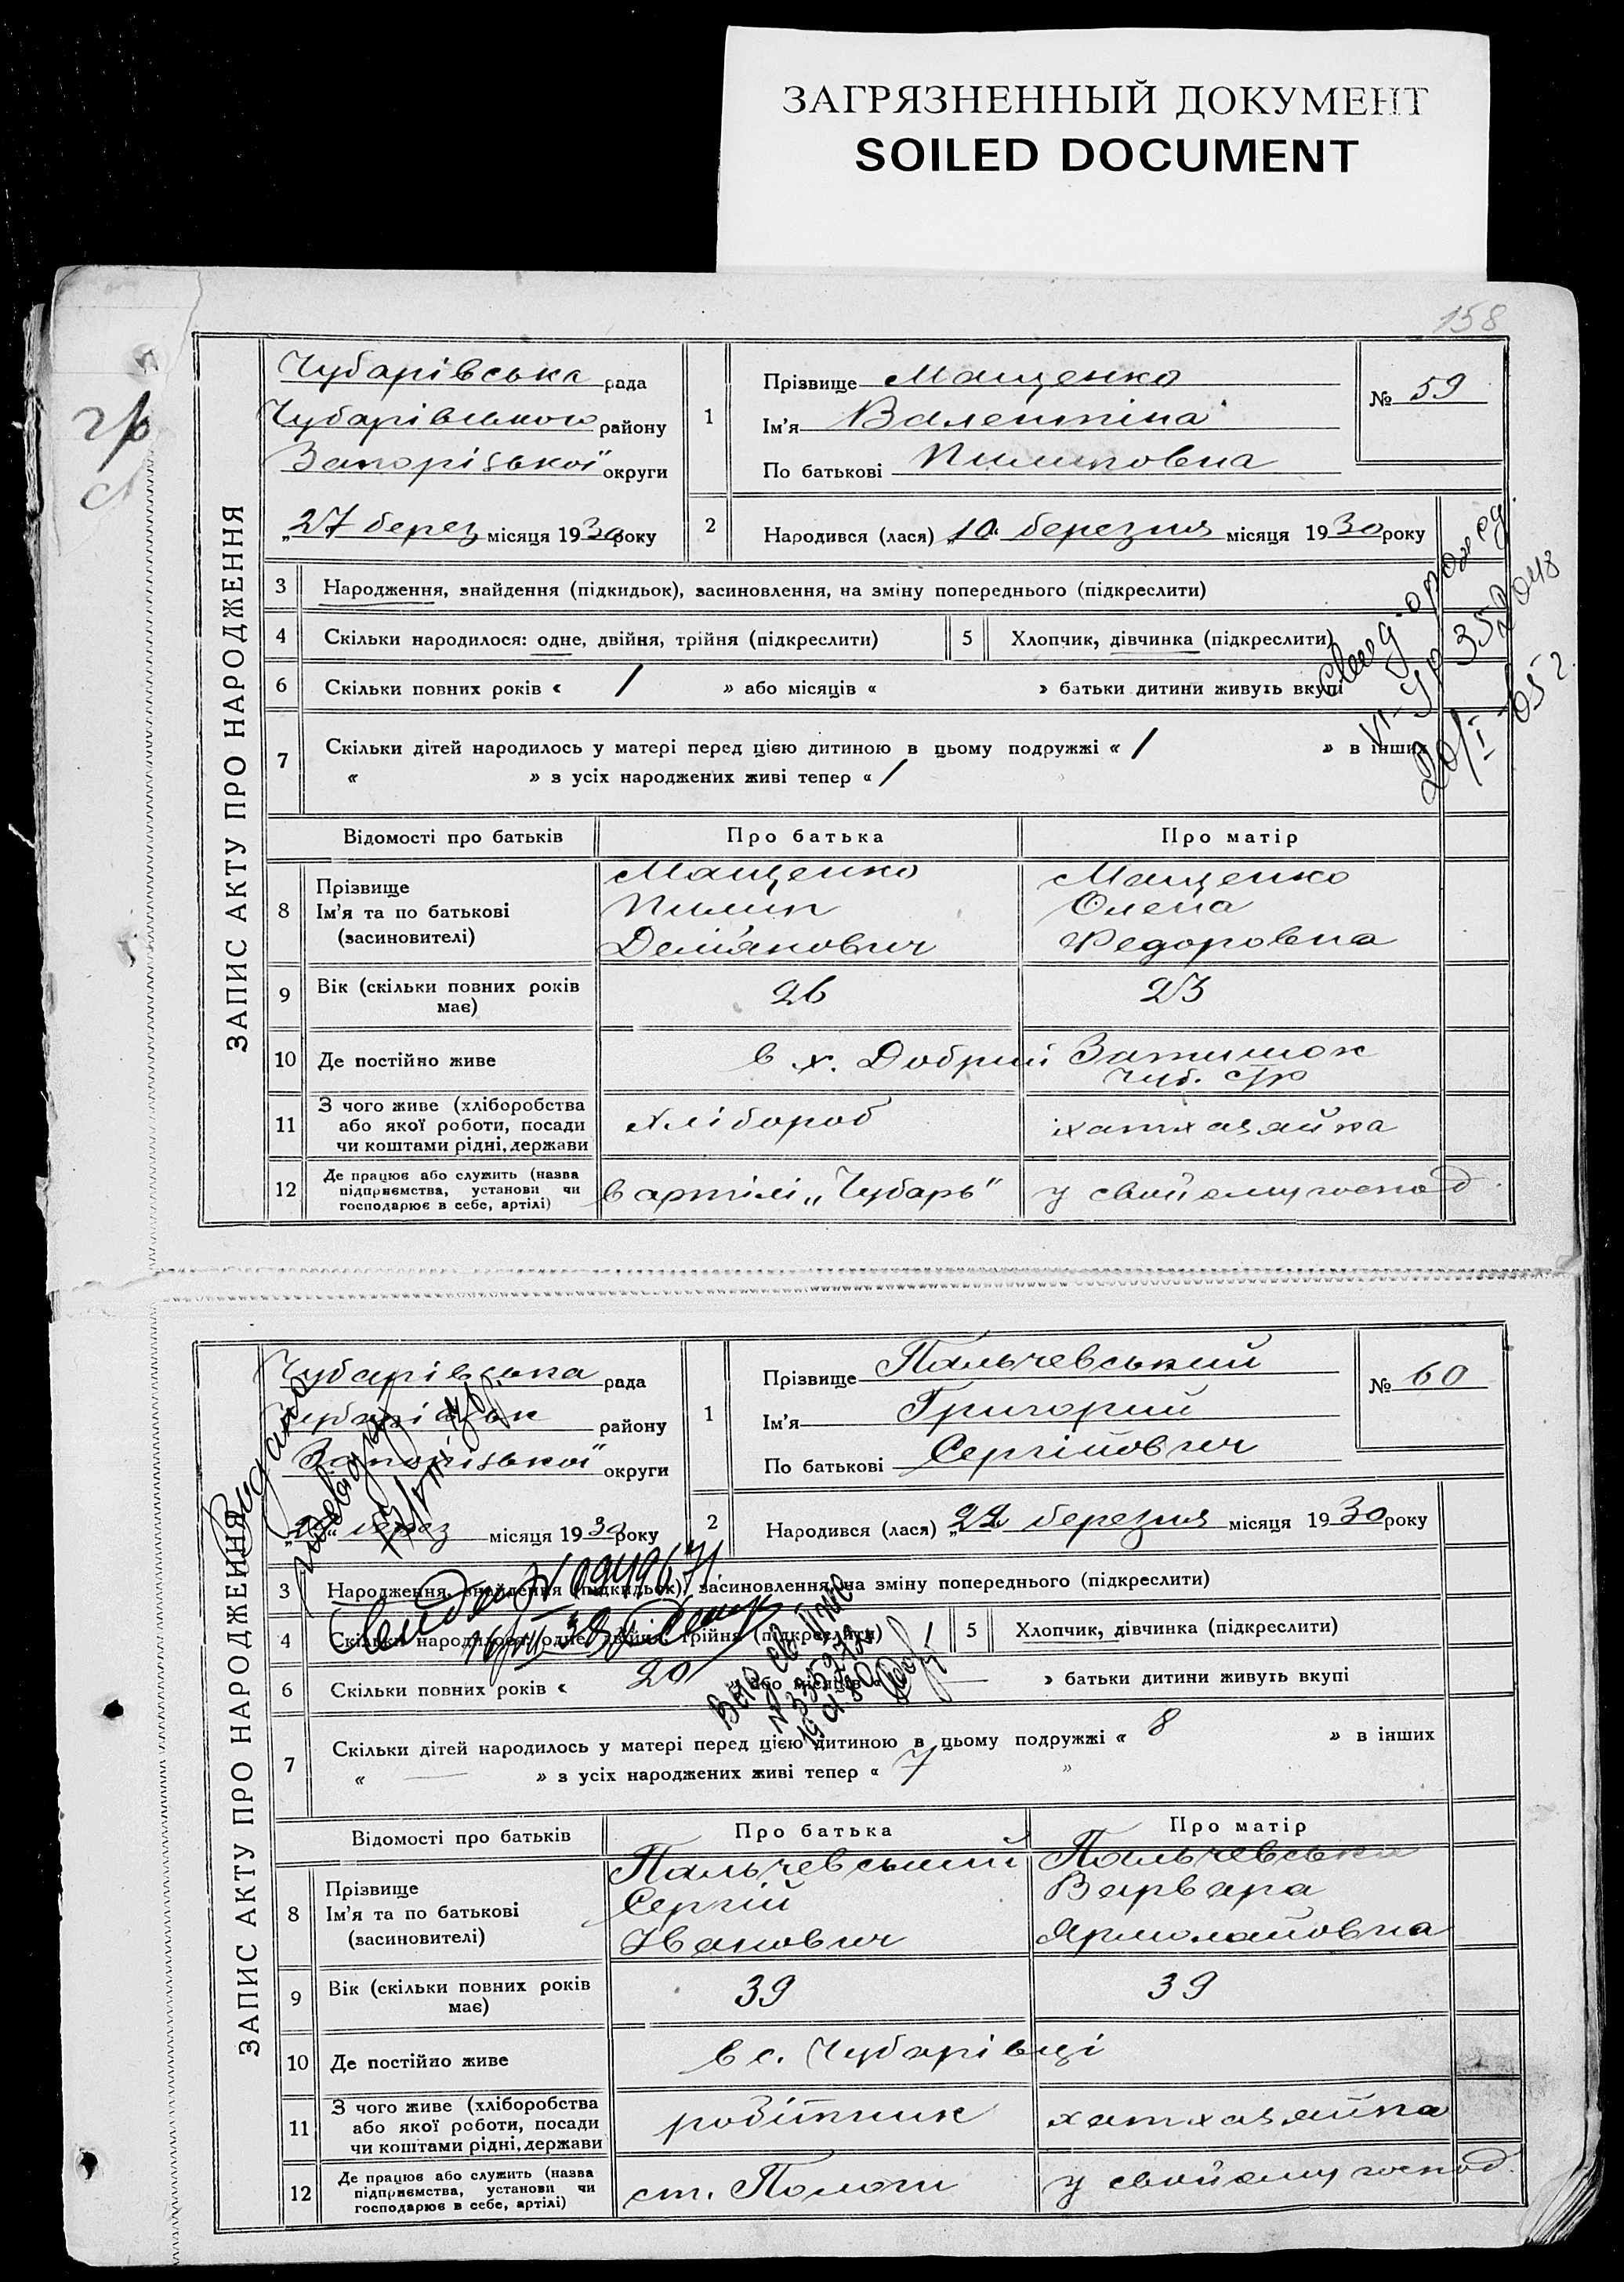 ЗАГРЯЗНЕННЫЙ ДОКУМЕНТ
SOILED DOCUMENT
158
ЗАПИС АКТУ ПРО НАРОДЖЕННЯ
Чубарівська рада
Чубарівського району
Запорізької округи
„27 берез місяця 1930 року
1 Прізвище Мащенко
Ім'я Валентіна
По батькові Пилиповна
№ 59
2 Народився (лася) „10" березня місяця 1930 року
3 Народження, знайдення (підкидьок), засиновлення, на зміну попереднього (підкреслити)
4 Скільки народилося: одне, двійня, трійня (підкреслити) 5 Хлопчик, дівчинка (підкреслити)
6 Скільки повних років « 1 » або місяців « » батьки дитини живуть вкупі
7 Скільки дітей народилось у матері перед цією дитиною в цьому подружжі « 1 » в інших
« » з усіх народжених живі тепер « 1
Відомості про батьків Про батька Про матір
8 Прізвище Ім'я та по батькові (засиновителі)
Мащенко Пилип Дем'янович
Мащенко Олена Федоровна
9 Вік (скільки повних років має) 26 23
10 Де постійно живе в х. Добрий Затишок
Чуб. с/р
11 З чого живе (хліборобства або якої роботи, посади чи коштами рідні, держави Хлібороб хатхазяйка
12 Де працює або служить (назва підприємства, установи чи господарює в себе, артілі) в артілі „Чубарь" у свойому господ.
ЗАПИС АКТУ ПРО НАРОДЖЕННЯ
Чубарівська рада
Чубарівськ району
Запорізької округи
берез місяця 1930 року
1 Прізвище Пальчевський
Ім'я Григорий
По батькові Сергійович
№ 60
2 Народився (лася) „22" березня місяця 1930 року
3 Народження, знайдення (підкидьок), засиновлення, на зміну попереднього (підкреслити)
4 Скільки народилося: одне, двійня, трійня (підкреслити) 5 Хлопчик, дівчинка (підкреслити)
6 Скільки повних років « 20 » або місяців « — » батьки дитини живуть вкупі
7 Скільки дітей народилось у матері перед цією дитиною в цьому подружжі « 8 » в інших
« — » з усіх народжених живі тепер « 7 »
Відомості про батьків Про батька Про матір
8 Прізвище Ім'я та по батькові (засиновителі)
Пальчевський Сергій Іванович
Пальчевська Варвара Ярмолайовна
9 Вік (скільки повних років має) 39 39
10 Де постійно живе в с. Чубарівці
11 З чого живе (хліборобства або якої роботи, посади чи коштами рідні, держави робітник хатхазяйка
12 Де працює або служить (назва підприємства, установи чи господарює в себе, артілі) ст. Пологи у свойому господ.